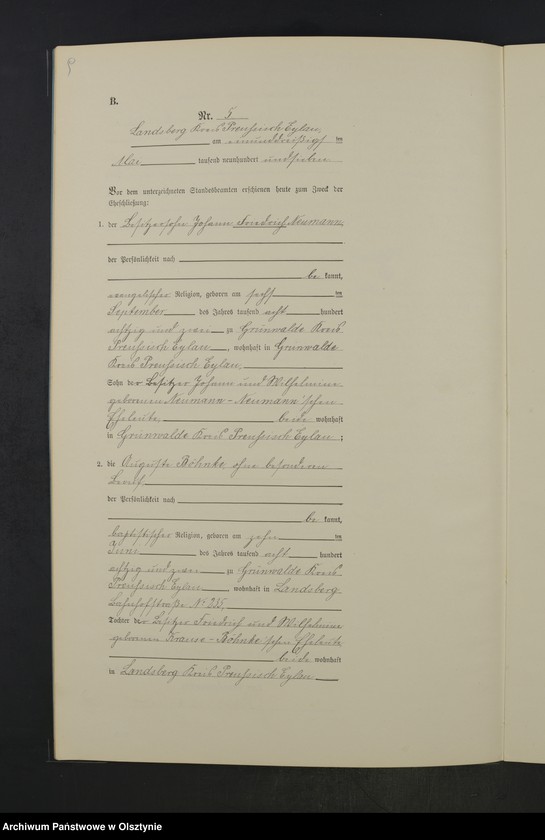 B.
Nr. 5
Landsberg Kreis Preußisch Eylau,
am einunddreißigsten
Mai tausend neunhundert und sieben
Vor dem unterzeichneten Standesbeamten erschienen heute zum Zweck der
Eheschließung:
1. der Besitzersohn Johann Friedrich Neumann,
der Persönlichkeit nach
be kannt,
evangelischer Religion, geboren am sechsten
September des Jahres tausend acht hundert
achtzig und zwei zu Grünwalde Kreis
Preußisch Eylau, wohnhaft in Grünwalde
Kreis Preußisch Eylau,
Sohn der Besitzer Johann und Wilhelmine
geborenen Neumann - Neumann'schen
Eheleute, beide wohnhaft
in Grünwalde Kreis Preußisch Eylau;
2. die Auguste Böhnke, ohne besonderen
Beruf,
der Persönlichkeit nach
be kannt,
baptistischer Religion, geboren am zehnten
Juni des Jahres tausend acht hundert
achtzig und zwei zu Grünwalde Kreis
Preußisch Eylau, wohnhaft in Landsberg
Bahnhofstraße No 235,
Tochter der Besitzer Friedrich und Wilhelmine
geborenen Krause - Böhnke'schen Eheleute
beide wohnhaft
in Landsberg Kreis Preußisch Eylau
Archiwum Państwowe w Olsztynie